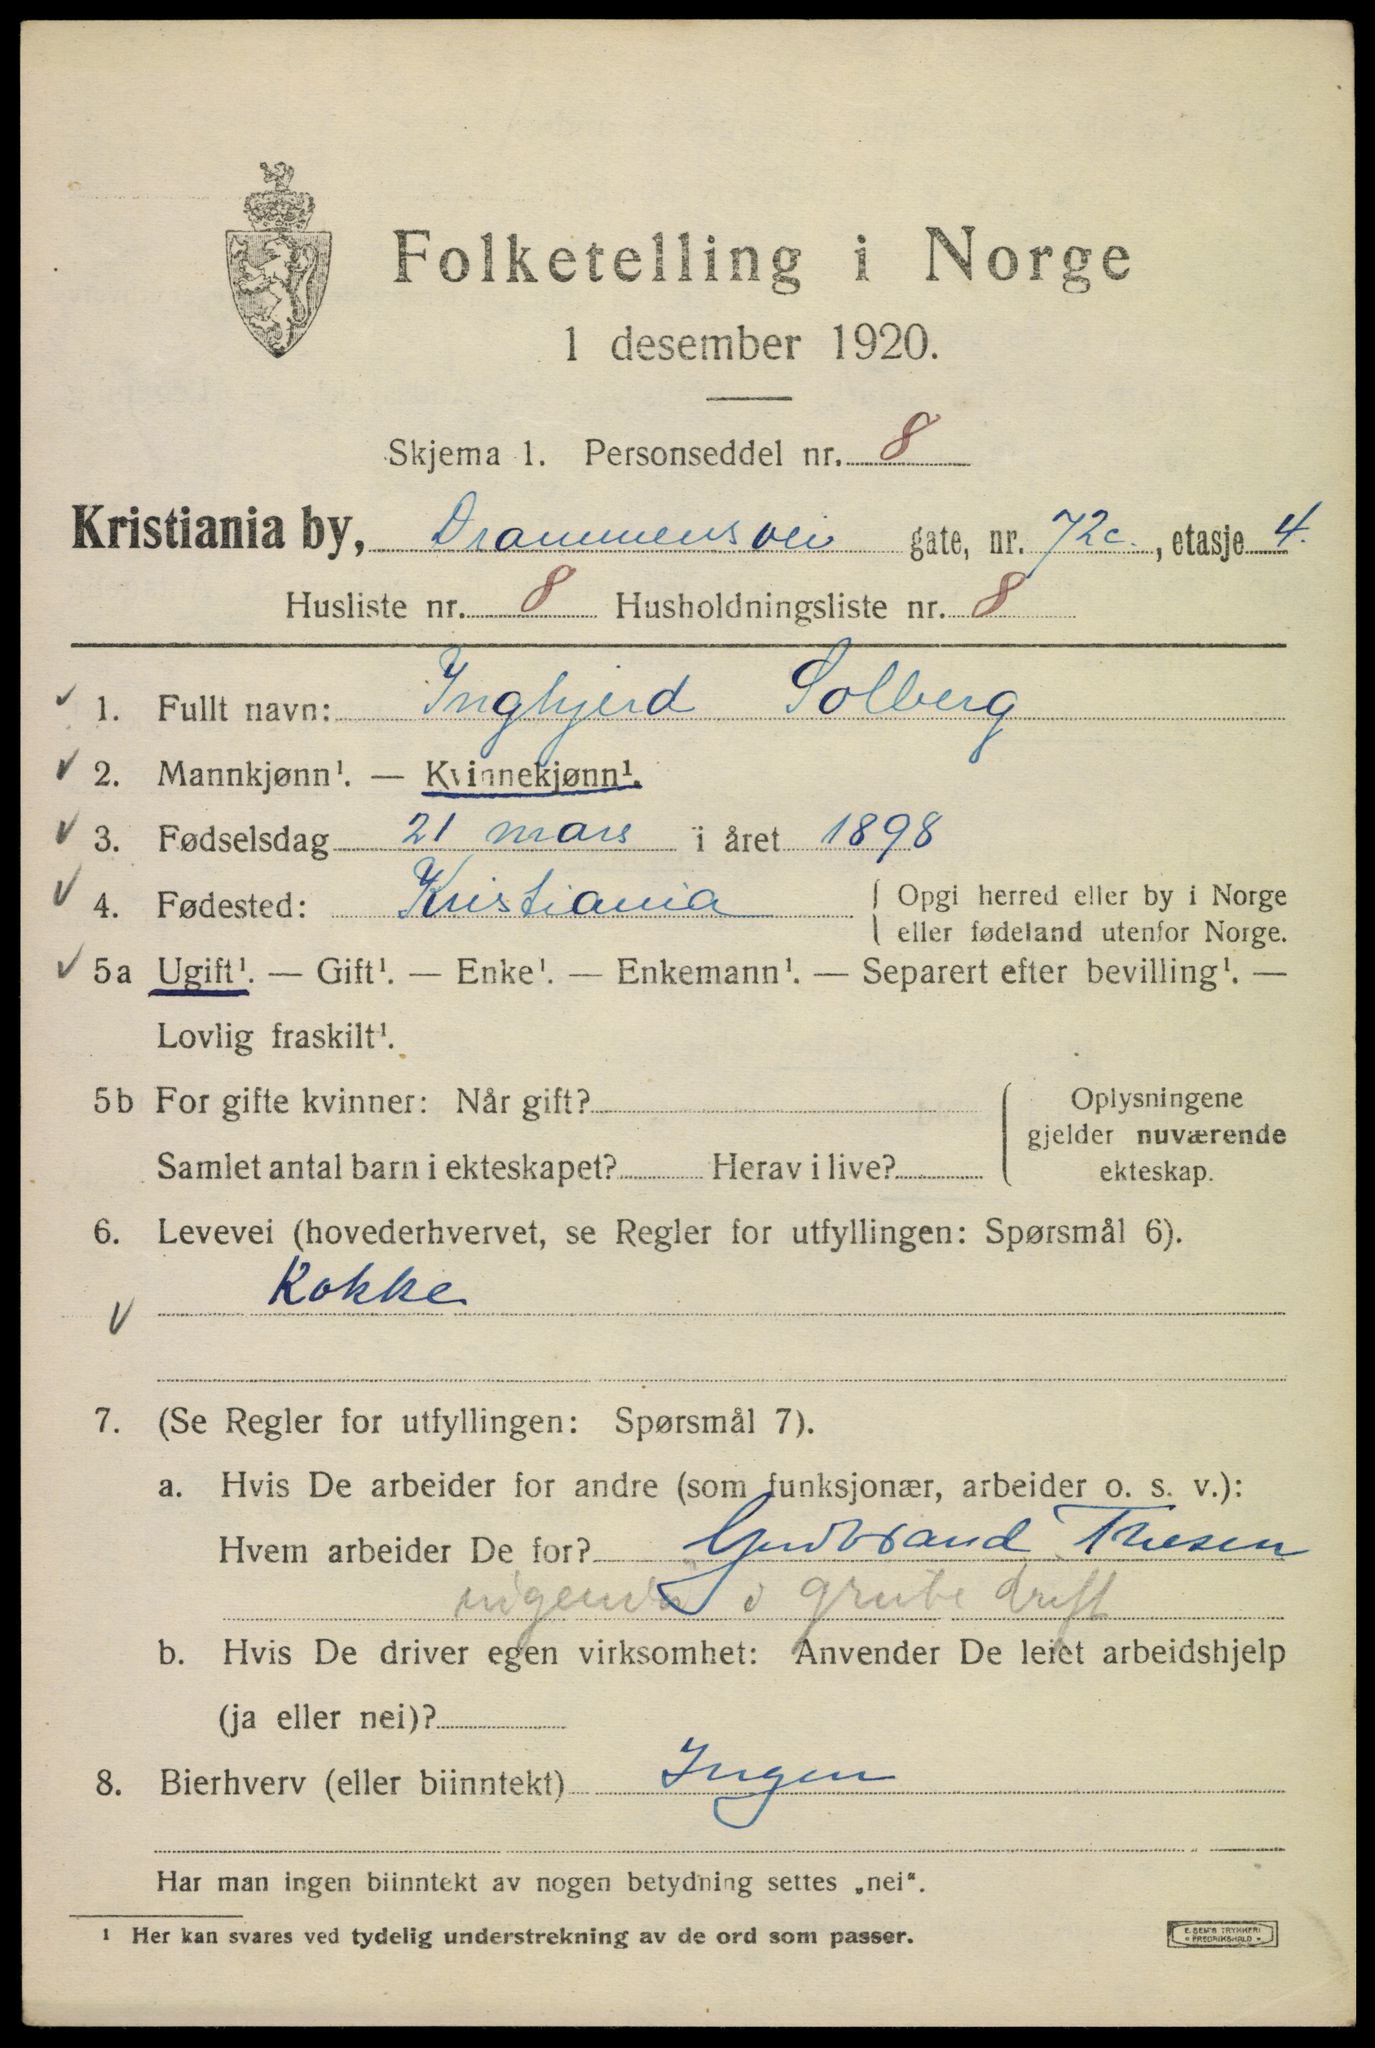 Folketelling i Norge
1 desember 1920.
Skjema 1. Personseddel nr. 8
Kristiania by, Drammensvei gate, nr. 72c., etasje 4.
Husliste nr. 8 Husholdningsliste nr. 8
1. Fullt navn: Ingbjerd Solberg
2. Mannkjønn¹. — Kvinnekjønn¹.
3. Fødselsdag 21 mars i året 1898
4. Fødested: Kristiania { Opgi herred eller by i Norge
eller fødeland utenfor Norge.
5a Ugift¹. — Gift¹. — Enke¹. — Enkemann¹. — Separert efter bevilling¹. —
Lovlig fraskilt¹.
5b For gifte kvinner: Når gift?
Samlet antal barn i ekteskapet? Herav i live?
Oplysningene
gjelder nuværende
ekteskap.
6. Levevei (hovederhvervet, se Regler for utfyllingen: Spørsmål 6).
Kokke
7. (Se Regler for utfyllingen: Spørsmål 7).
a. Hvis De arbeider for andre (som funksjonær, arbeider o. s. v.):
Hvem arbeider De for? Gudbrand Thesen
i grubedrift
b. Hvis De driver egen virksomhet: Anvender De leiet arbeidshjelp
(ja eller nei)?
8. Bierhverv (eller biinntekt) Ingen
Har man ingen biinntekt av nogen betydning settes „nei“.
¹ Her kan svares ved tydelig understrekning av de ord som passer.
E. SEM'S TRYKKERI
FREDRIKSHALD